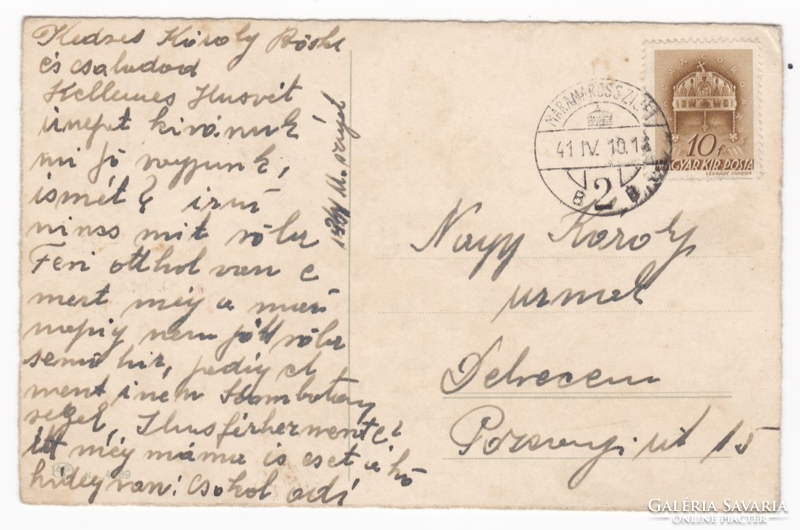 Kedves Károly Böske
és családod
Kellemes Husvét
ünept kivánunk
mi jó vagyunk,
ismét irni
nincs mit róla
Feri otthol van e
mert még a mai
napig nem jött róla
semi hir, pedig el
ment inén Szombaton
Ilus férhez ment
itt még máma is eset a hó
hideg van! Csokol
1941
MÁRAMAROSSZIGET
41 IV. 10.
B 2 B
10f
MAGYAR KIR. POSTA
Nagy Károly
urnak
Debrecen
Pozsonyi út 15
GALÉRIA SAVARIA
ONLINE PIACTÉR